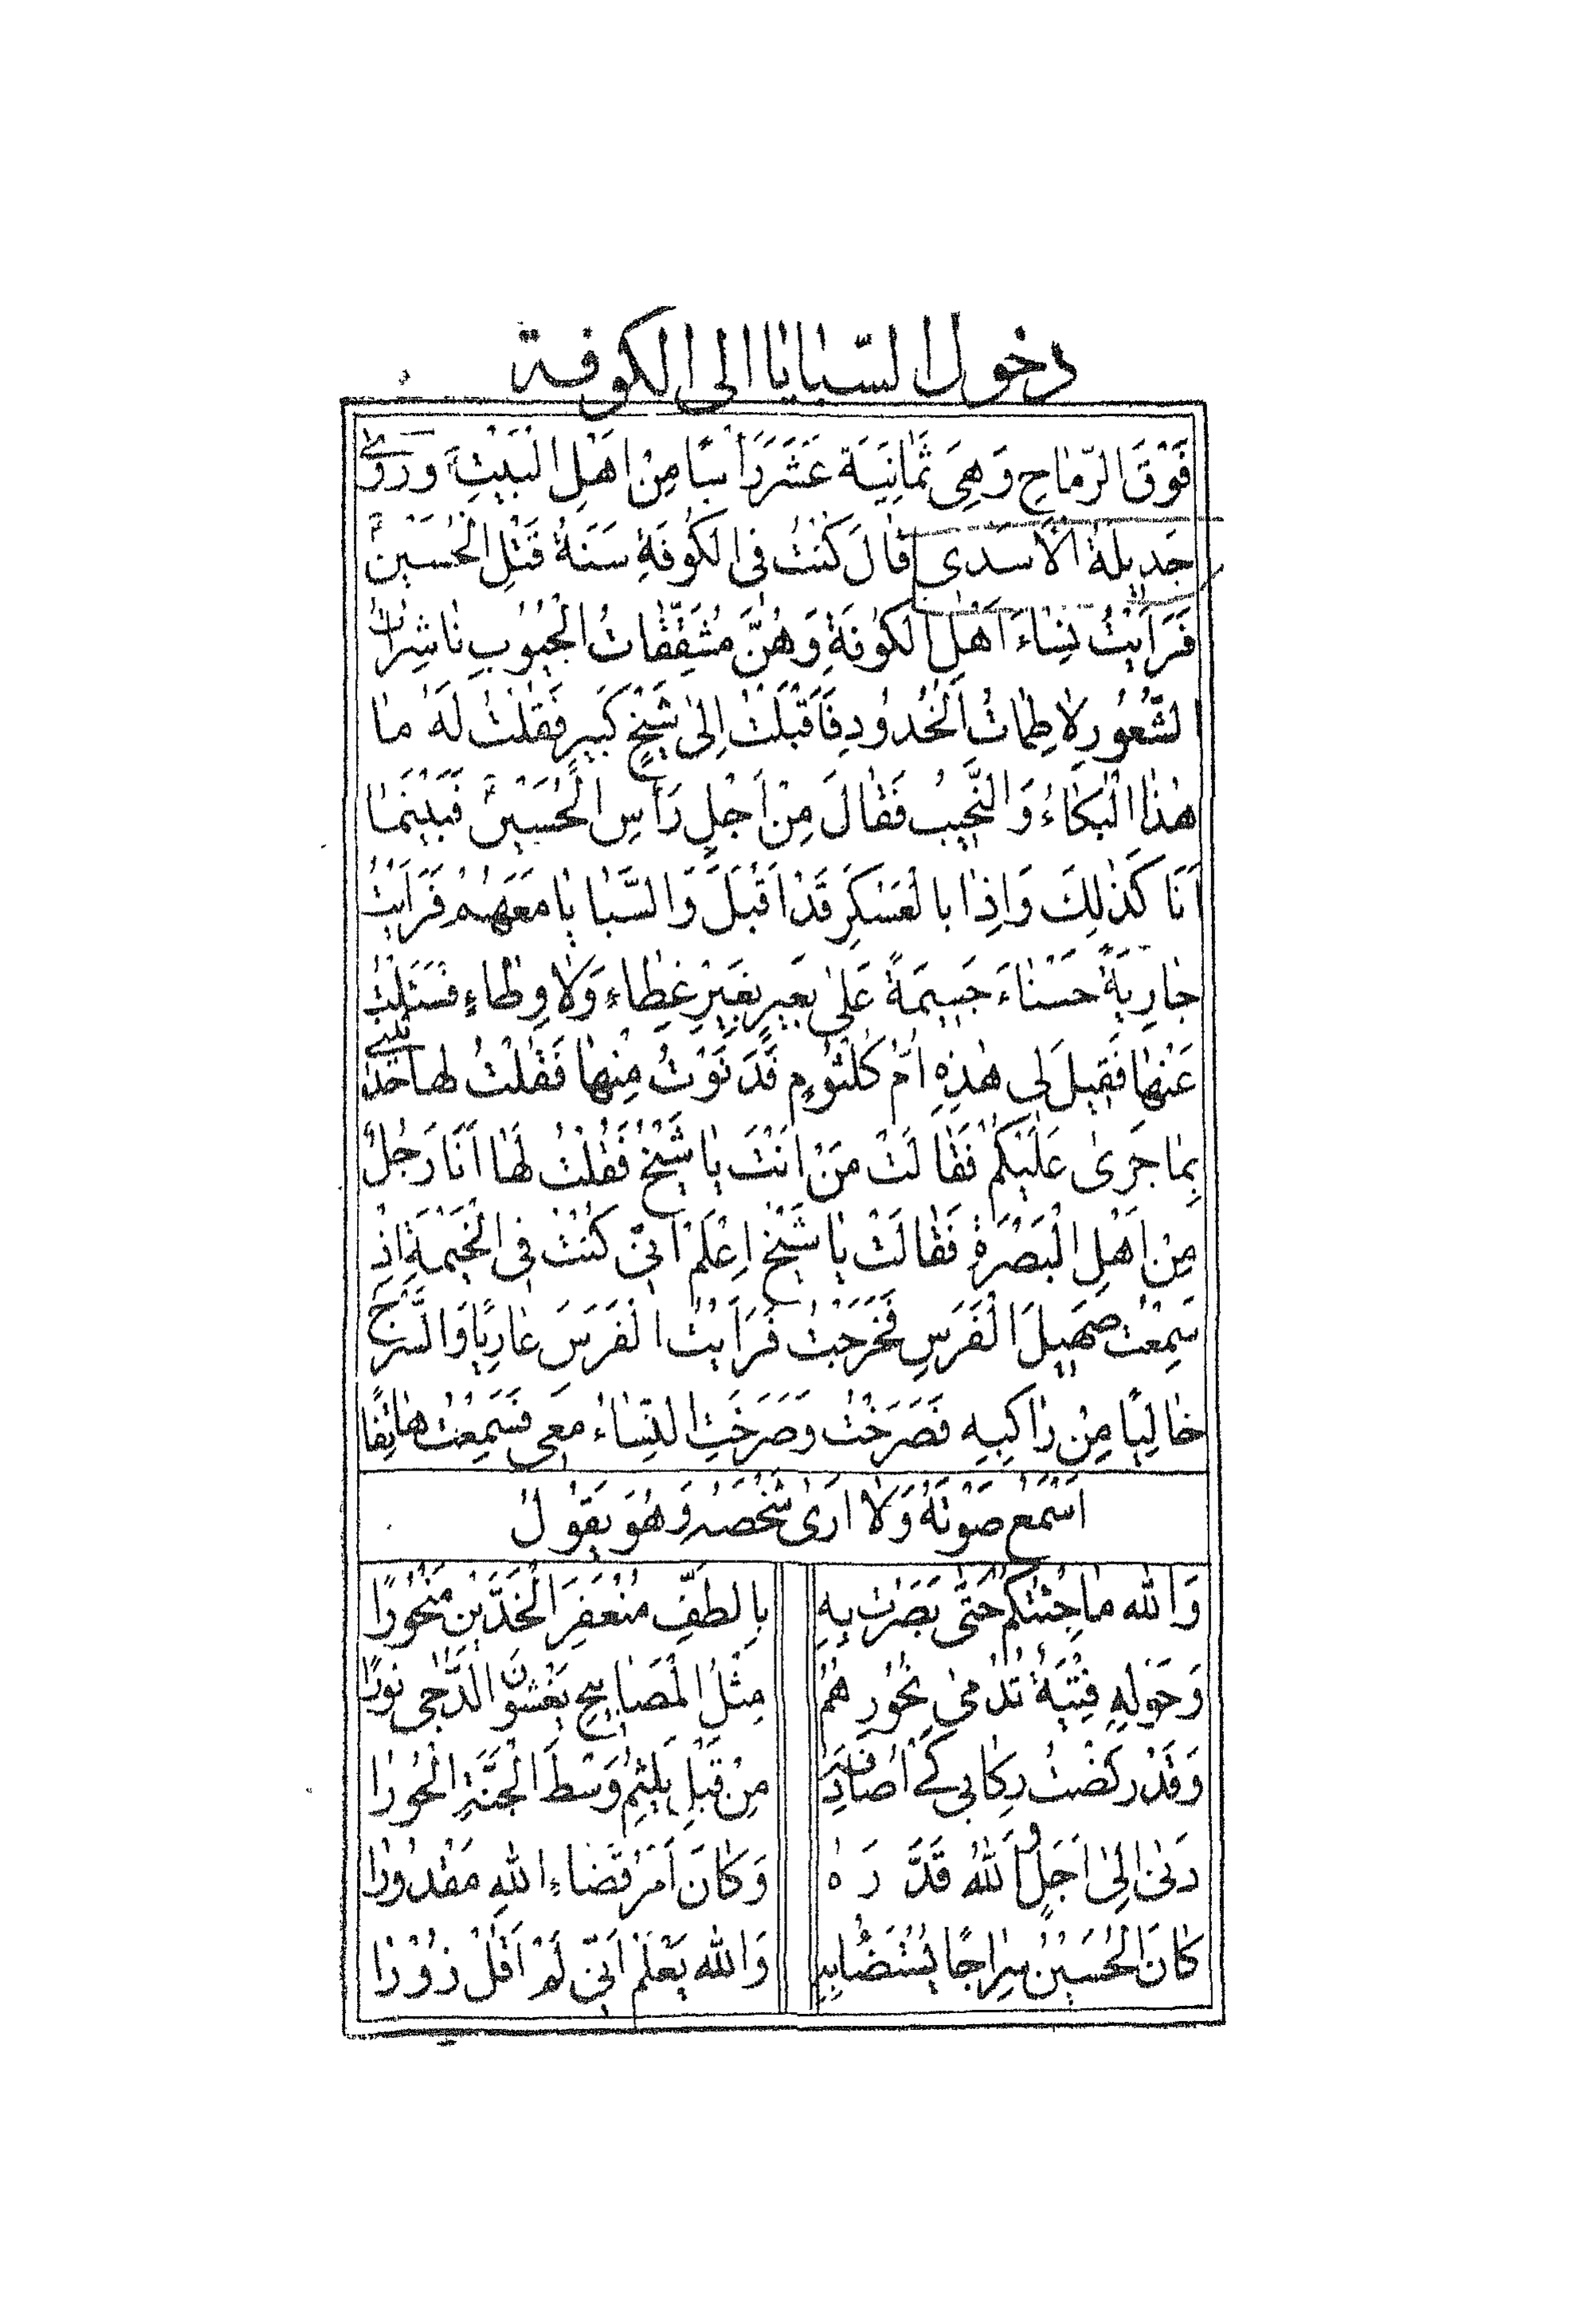 دخول السّبايا الى الكوفة
فَوْقَ الرِّمٰاحِ وَهِىَ ثَمٰانِيَةَ عَشَرَ رَأْسًا مِنْ اَهْلِ الْبَيْتِ وَرَوىٰ
جَدِيلَةُ الْاَسَدى قٰالَ كُنْتُ فِى الْكُوفَةِ سَنَةُ قَتْلِ الْحُسَيْنِ
فَرَاَيْتُ نِسٰاءَ اَهْلِ الْكُوفَةِ وَهُنَّ مُشَقِّقٰاتُ الْجُيُوبِ نٰاشِرٰاتُ
الشُّعُورِ لاٰطِمٰاتُ الْخُدُودِ فَاَقْبَلْتُ اِلىٰ شَيْخٍ كَبيرٍ فَقُلْتُ لَهُ مٰا
هٰذَا الْبُكٰاءُ وَالنَّحيبُ فَقٰالَ مِنْ اَجْلِ رَأْسِ الْحُسَيْنِ فَبَيْنَمٰا
اَنَا كَذٰلِكَ وَاِذٰا بِالْعَسْكَرِ قَدْ اَقْبَلَ وَالسَّبٰايٰا مَعَهُمْ فَرَاَيْتُ
جٰارِيَةً حَسْنٰاءَ جَسيمَةً عَلىٰ بَعيرٍ بِغَيْرِ غِطٰاءٍ وَلاٰ وِطٰاءٍ فَسَئَلْتُ
عَنْهٰا فَقيلَ لى هٰذِهِ اُمُّ كُلْثُومٍ فَدَنَوْتُ مِنْهٰا فَقُلْتُ لَهٰا حَدِّثينى
بِمٰا جَرىٰ عَلَيْكُمْ فَقٰالَتْ مَنْ اَنْتَ يٰا شَيْخُ فَقُلْتُ لَهٰا اَنَا رَجُلٌ
مِنْ اَهْلِ الْبَصْرَةِ فَقٰالَتْ يٰا شَيْخُ اِعْلَمْ اَنّى كُنْتُ فِى الْخَيْمَةِ اِذْ
سَمِعْتُ صَهيلَ الْفَرَسِ فَخَرَجْتُ فَرَاَيْتُ الْفَرَسَ عٰارِيًا وَالسَّرْجَ
خٰالِيًا مِنْ رٰاكِبِهِ فَصَرَخْتُ وَصَرَخَتِ النِّسٰاءُ مَعى فَسَمِعْتُ هٰاتِفًا
اَسْمَعُ صَوْتَهُ وَلاٰ اَرىٰ شَخْصَهُ وَهُوَ يَقُولُ
وَاللهِ مٰا جِئْتُكُمْ حَتّىٰ بَصُرْتُ بِهِ بِالطَّفِّ مُنْعَفِرَ الْخَدَّيْنِ مَنْحُورًا
وَحَوْلَهِ فِتْيَةٌ تُدْمىٰ نُحُورُهُمُ مِثْلُ الْمَصٰابيحِ يَغْشَوْنَ الدُّجىٰ نُورًا
وَقَدْ رَكَضْتُ رِكٰابى كَىْ اُصٰادِفَهُ مِنْ قَبْلِ يَلْثِمُ وَسْطَ الْجَنَّةِ الْحُورٰا
دَنىٰ اِلىٰ اَجَلٍ وَاللهُ قَدَّرَهُ وَكٰانَ اَمْرُ قَضٰاءِ اللهِ مَقْدُورًا
كٰانَ الْحُسَيْنُ سِرٰاجًا يُسْتَضٰاءُ بِهِ وَاللهُ يَعْلَمُ اَنّى لَمْ اَقُلْ زُوْرًا